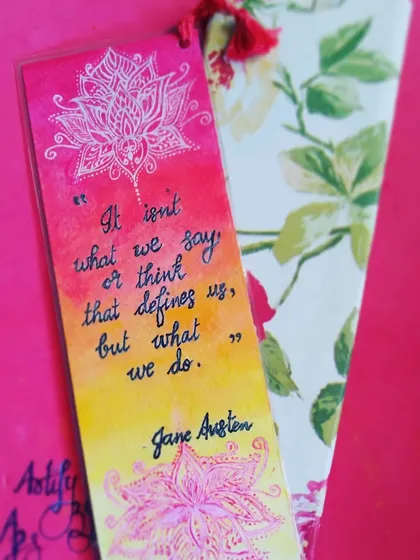 " It isn't
what we say,
or think
that defines us,
but what
we do. "
- Jane Austen
Artify
By
Aps